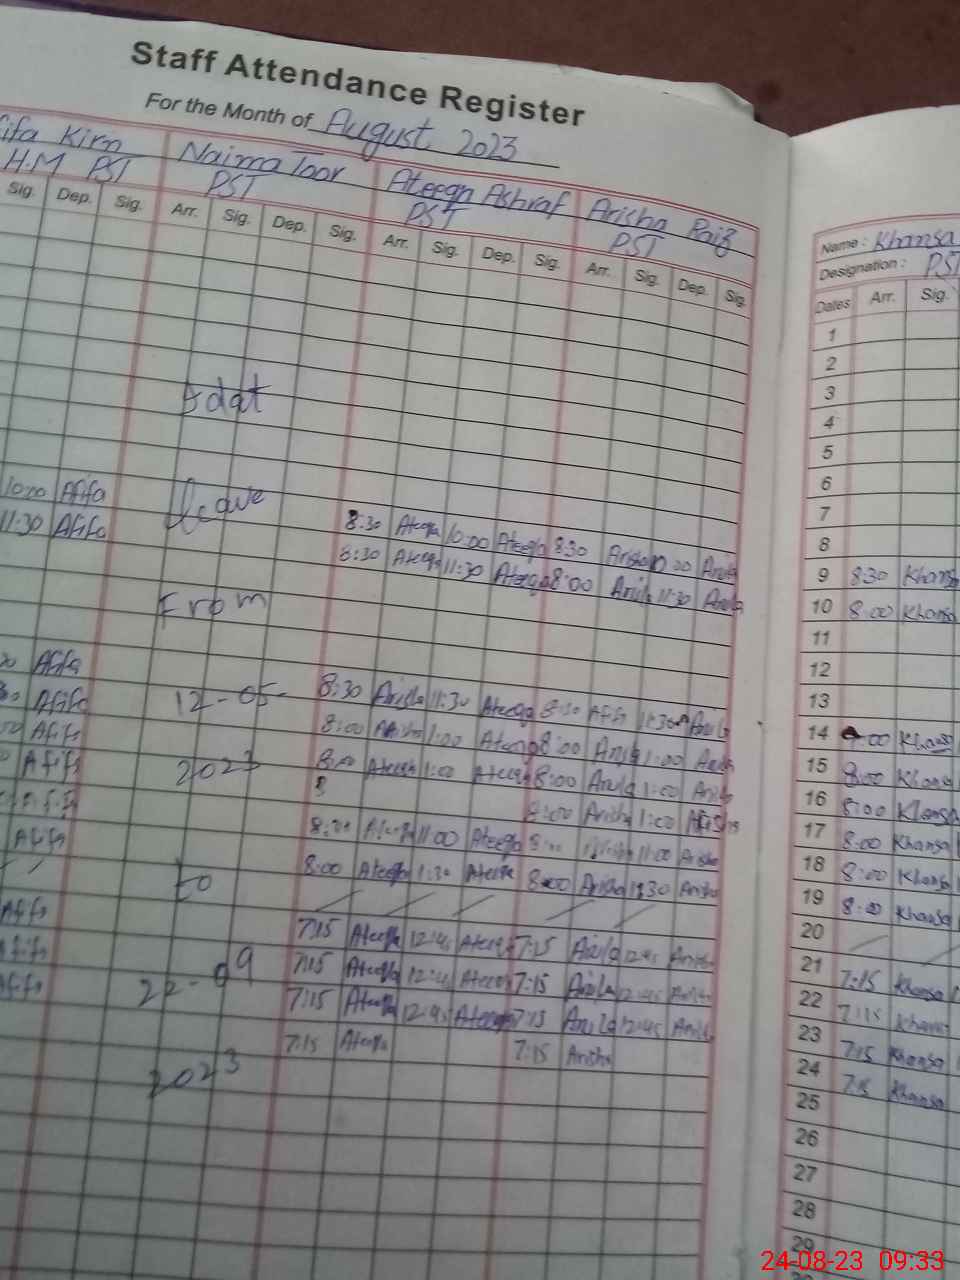 Staff Attendance Register
For the Month of August 2023
ifa Kirn Naima Toor Ateeqa Ashraf Arisha Raiz
H.M PST PST PST PST
Sig. Dep. Sig. Arr. Sig. Dep. Sig. Arr. Sig. Dep. Sig. Arr. Sig. Dep. Sig.
leave
10:00 Afifa 8:30 Ateeqa 10:00 Ateeqa 8:30 Arisha 10:00 Arisha
11:30 Afifa 8:30 Ateeqa 11:30 Ateeqa 8:00 Arisha 11:30 Arisha
From
Afifa
12-05- 8:30 Arisha 11:30 Ateeqa 8:30 Afifa 11:30 Arisha
Afifa
Afifa 8:00 Arisha 1:00 Ateeqa 8:00 Arisha 1:00 Arisha
2023
Afifa 8:00 Ateeqa 1:00 Ateeqa 8:00 Arisha 1:00 Arisha
8 8:00 Arisha 1:00 Arisha
Afifa 8:00 Ateeqa 11:00 Ateeqa 8:00 Arisha 11:00 Arisha
to 8:00 Ateeqa 1:30 Ateeqa 8:00 Arisha 1:30 Arisha
Afifa 7:15 Ateeqa 12:45 Ateeqa 7:15 Arisha 12:45 Arisha
22-09
Afifa 7:15 Ateeqa 12:45 Ateeqa 7:15 Arisha 12:45 Arisha
Afifa 7:15 Ateeqa 12:45 Ateeqa 7:15 Arisha 12:45 Arisha
2023 7:15 Ateeqa 7:15 Arisha
Name : Khansa
Designation : PST
Dates Arr. Sig.
1
2
3
4
5
6
7
8
9 8:30 Khansa
10 8:00 Khansa
11
12
13
14 :00 Khansa
15 8:00 Khansa
16 8:00 Khansa
17 8:00 Khansa
18 8:00 Khansa
19 8:00 Khansa
20
21 7:15 Khansa
22 7:15 Khansa
23 7:15 Khansa
24 7:15 Khansa
25
26
27
28
29
24-08-23 09:33